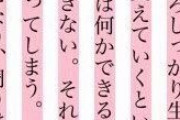 ろしっかり生
えていくとい
は何かできる
きない。それ
ってしまう。